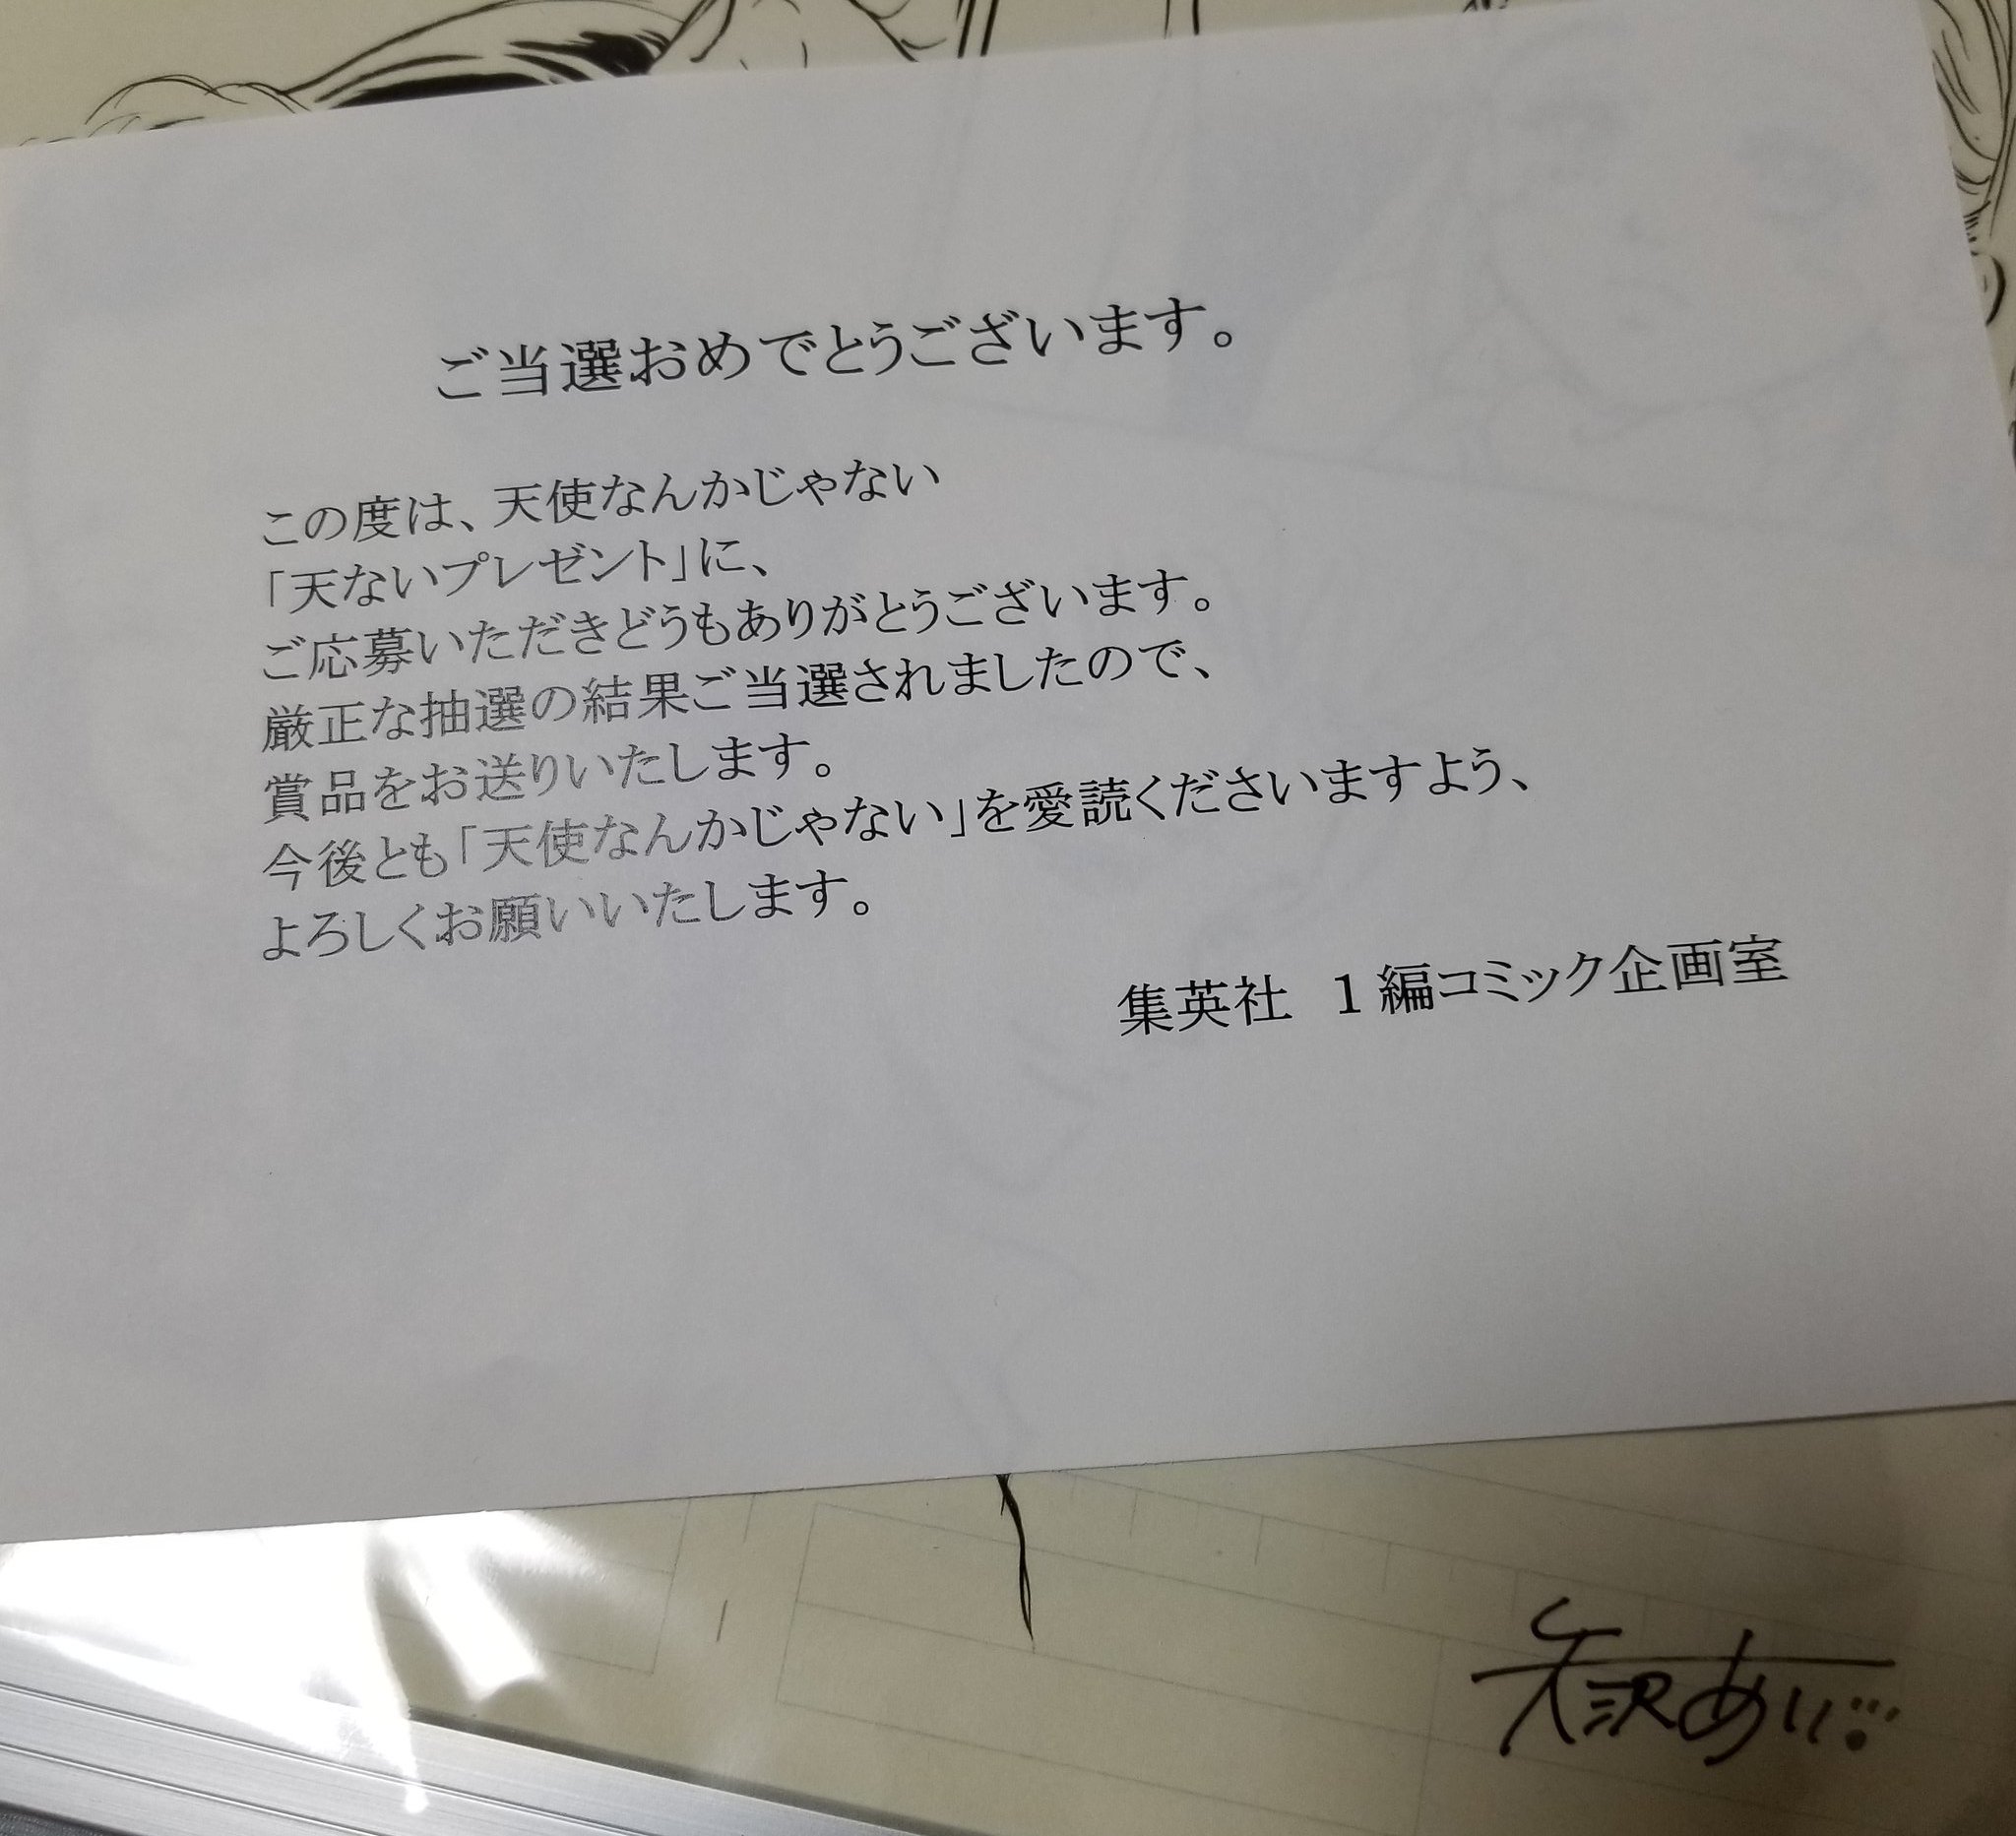 ご当選おめでとうございます。
この度は、天使なんかじゃない
「天ないプレゼント」に、
ご応募いただきどうもありがとうございます。
厳正な抽選の結果ご当選されましたので、
賞品をお送りいたします。
今後とも「天使なんかじゃない」を愛読くださいますよう、
よろしくお願いいたします。
集英社　1編コミック企画室
矢沢あい